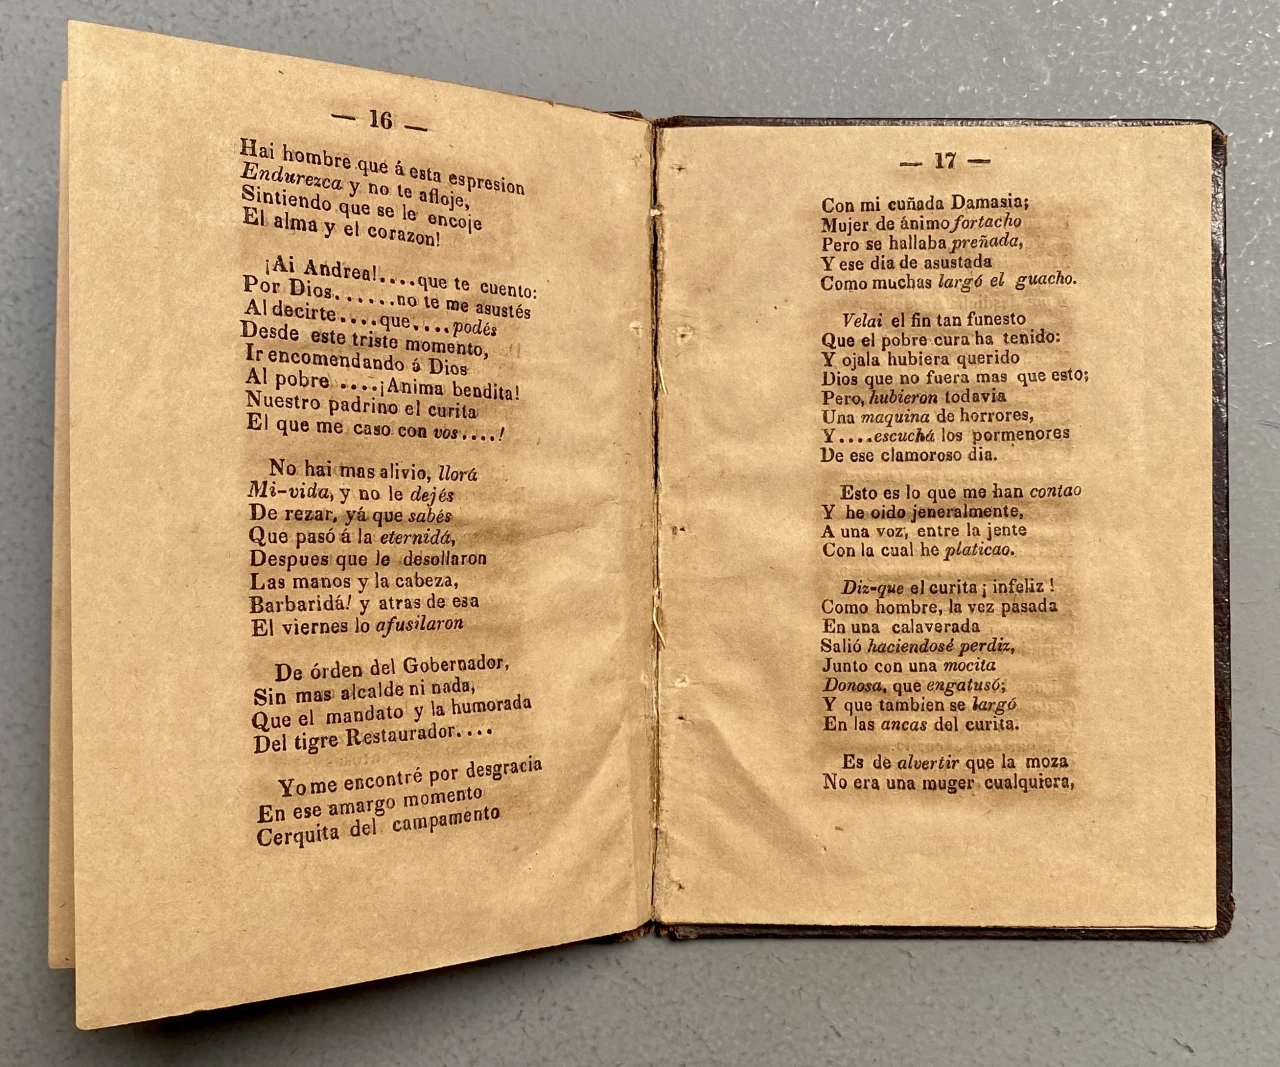 — 16 —
Hai hombre que á esta espresion
Endurezca y no te afloje,
Sintiendo que se le encoje
El alma y el corazon!
¡Ai Andrea!....que te cuento:
Por Dios......no te me asustés
Al decirte....que....podés
Desde este triste momento,
Ir encomendando á Dios
Al pobre ....¡Anima bendita!
Nuestro padrino el curita
El que me caso con vos....!
No hai mas alivio, llorá
Mi-vida, y no le dejés
De rezar, yá que sabés
Que pasó á la eternidá,
Despues que le desollaron
Las manos y la cabeza,
Barbaridá! y atras de esa
El viernes lo afusilaron
De órden del Gobernador,
Sin mas alcalde ni nada,
Que el mandato y la humorada
Del tigre Restaurador....
Yo me encontré por desgracia
En ese amargo momento
Cerquita del campamento
— 17 —
Con mi cuñada Damasia;
Mujer de ánimo fortacho
Pero se hallaba preñada,
Y ese dia de asustada
Como muchas largó el guacho.
Velai el fin tan funesto
Que el pobre cura ha tenido:
Y ojala hubiera querido
Dios que no fuera mas que esto;
Pero, hubieron todavia
Una maquina de horrores,
Y....escuchá los pormenores
De ese clamoroso dia.
Esto es lo que me han contao
Y he oido jeneralmente,
A una voz, entre la jente
Con la cual he platicao.
Diz-que el curita ¡ infeliz !
Como hombre, la vez pasada
En una calaverada
Salió haciendosé perdiz,
Junto con una mocita
Donosa, que engatusó;
Y que tambien se largó
En las ancas del curita.
Es de alvertir que la moza
No era una muger cualquiera,